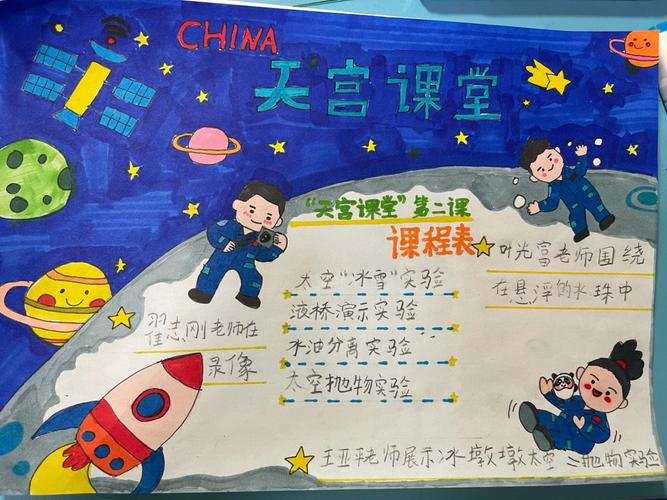 CHINA
天宫课堂
"天宫课堂"第二课
课程表
太空"冰雪"实验
液桥演示实验
水油分离实验
太空抛物实验
叶光富老师围绕
在悬浮的水珠中
翟志刚老师在
录像
王亚平老师展示冰墩墩太空抛物实验